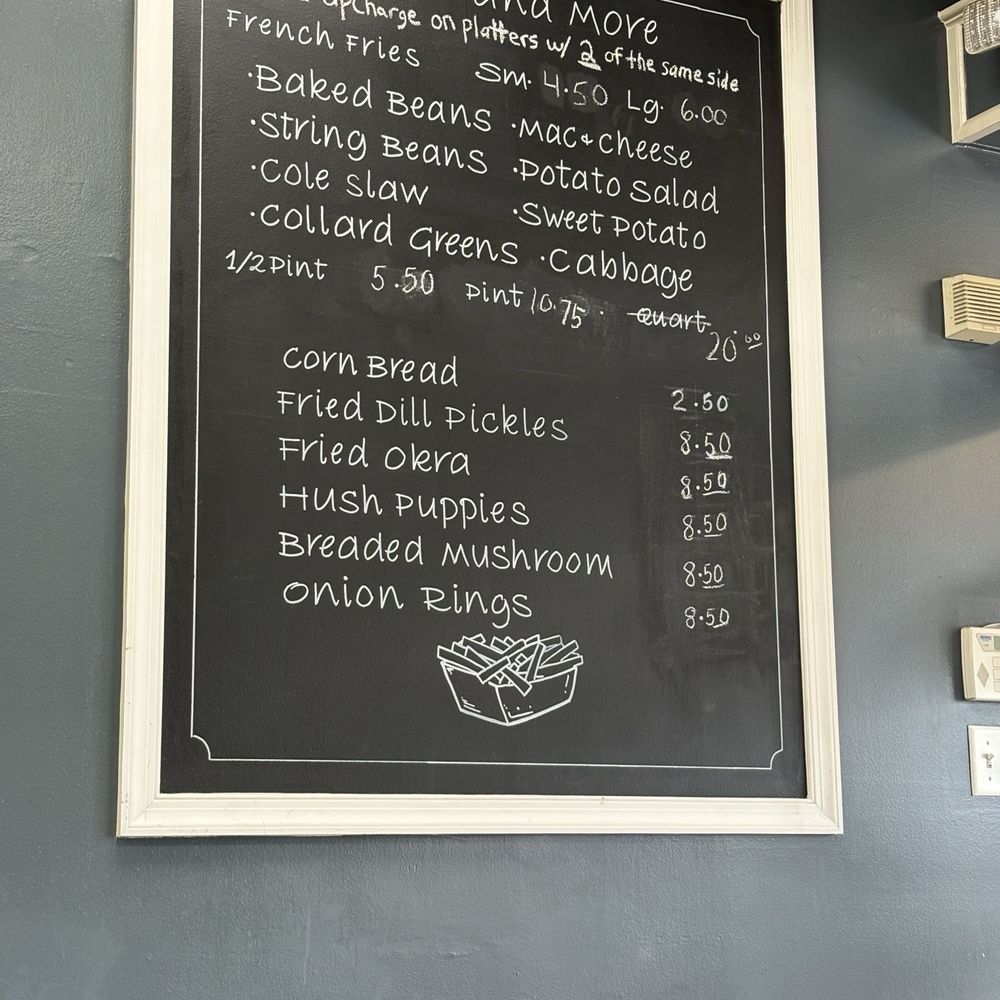 and More
upcharge on platters w/ 2 of the same side
French Fries Sm. 4.50 Lg. 6.00
·Baked Beans ·Mac & Cheese
·String Beans ·Potato Salad
·Cole Slaw ·Sweet Potato
·Collard Greens ·Cabbage
1/2 Pint 5.50 Pint 10.75 Quart 20.00
Corn Bread 2.50
Fried Dill Pickles 8.50
Fried Okra 8.50
Hush Puppies 8.50
Breaded Mushroom 8.50
Onion Rings 8.50